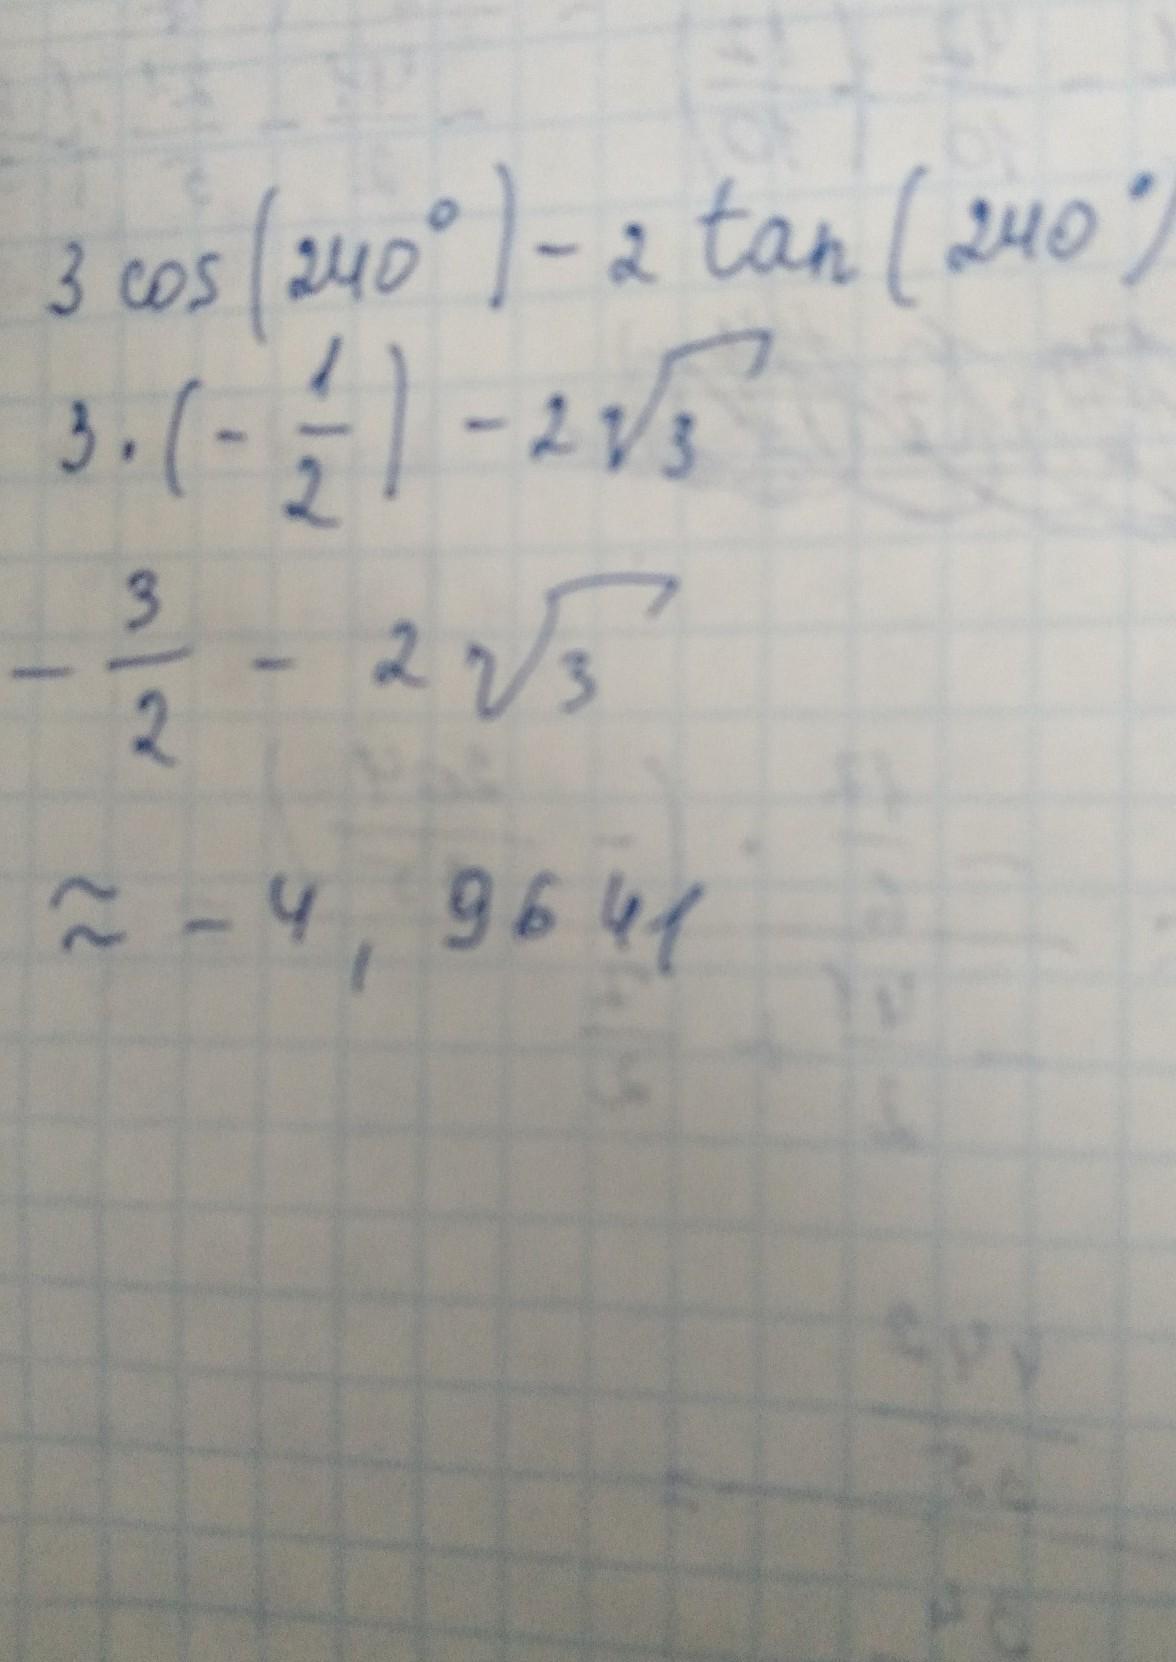 3 cos(240°) - 2 tan(240°)
3 · (- 1/2) - 2√3
- 3/2 - 2√3
≈ - 4,9641